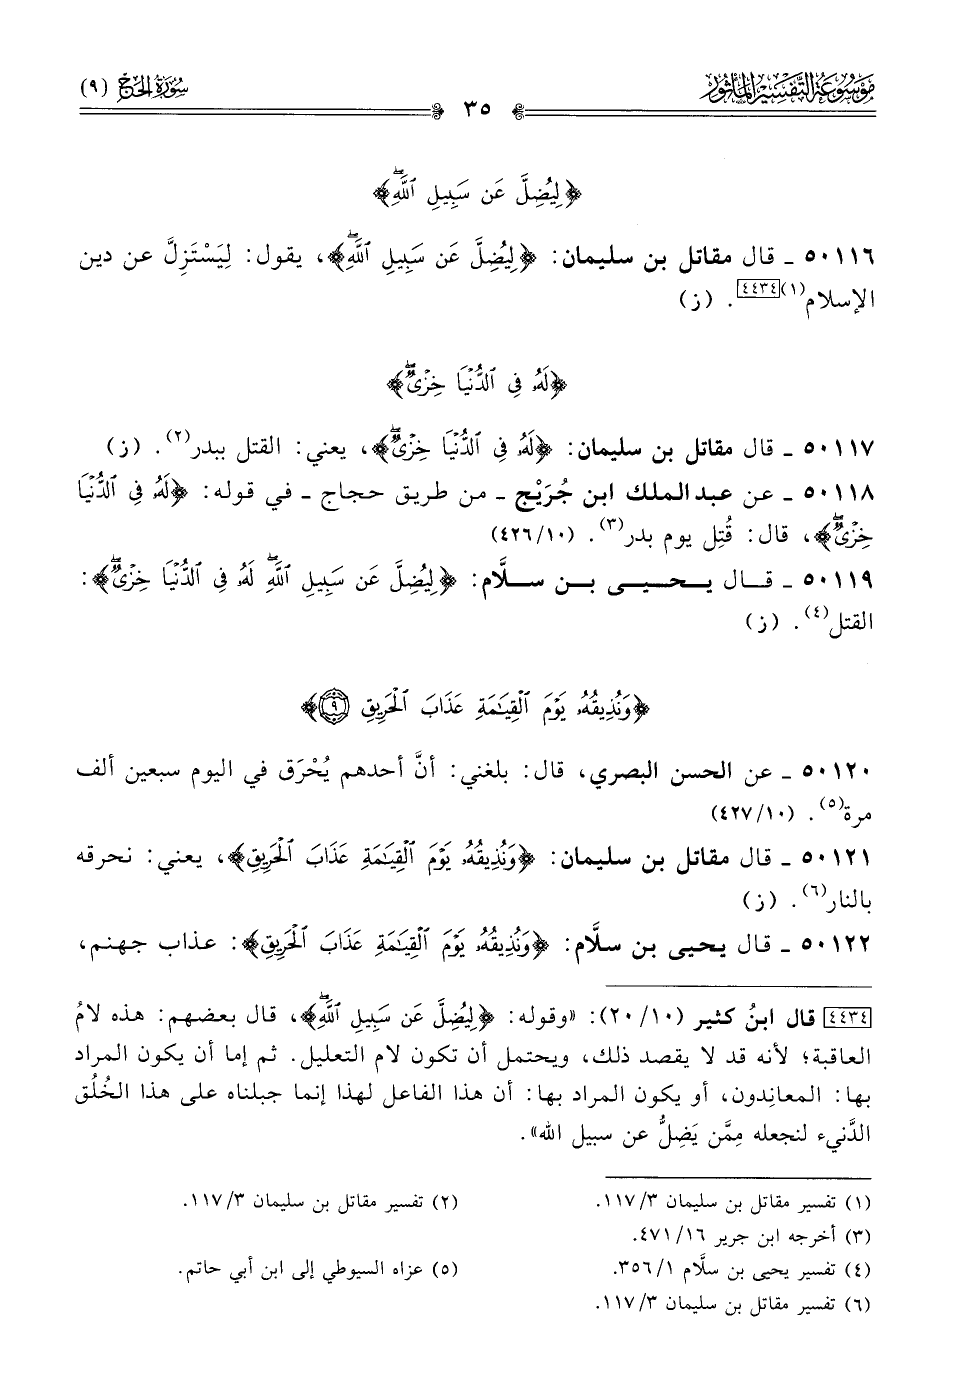 مَوْسُوعَة التَّفْسِيْر المَأْثُور
٣٥
سُورَة الحَجّ (٩)
﴿لِيُضِلَّ عَن سَبِيلِ ٱللَّهِۖ﴾
٥٠١١٦ ـ قال مقاتل بن سليمان: ﴿لِيُضِلَّ عَن سَبِيلِ ٱللَّهِۖ﴾، يقول: لِيَسْتَزِلَّ عن دين
الإسلام(١)[٤٤٣٤]. (ز)
﴿لَهُۥ فِى ٱلدُّنْيَا خِزْىٌۖ﴾
٥٠١١٧ ـ قال مقاتل بن سليمان: ﴿لَهُۥ فِى ٱلدُّنْيَا خِزْىٌۖ﴾، يعني: القتل ببدر(٢). (ز)
٥٠١١٨ ـ عن عبد الملك ابن جُرَيْج ـ من طريق حجاج ـ في قوله: ﴿لَهُۥ فِى ٱلدُّنْيَا
خِزْىٌۖ﴾، قال: قُتِل يوم بدر(٣). (٤٢٦/١٠)
٥٠١١٩ ـ قـال يـحـيـى بـن سـلَّام: ﴿لِيُضِلَّ عَن سَبِيلِ ٱللَّهِۖ لَهُۥ فِى ٱلدُّنْيَا خِزْىٌۖ﴾:
القتل(٤). (ز)
﴿وَنُذِيقُهُۥ يَوْمَ ٱلْقِيَـٰمَةِ عَذَابَ ٱلْحَرِيقِ ٩﴾
٥٠١٢٠ ـ عن الحسن البصري، قال: بلغني: أنَّ أحدهم يُحْرَق في اليوم سبعين ألف
مرة(٥). (٤٢٧/١٠)
٥٠١٢١ ـ قال مقاتل بن سليمان: ﴿وَنُذِيقُهُۥ يَوْمَ ٱلْقِيَـٰمَةِ عَذَابَ ٱلْحَرِيقِ﴾، يعني: نحرقه
بالنار(٦). (ز)
٥٠١٢٢ ـ قال يحيى بن سلَّام: ﴿وَنُذِيقُهُۥ يَوْمَ ٱلْقِيَـٰمَةِ عَذَابَ ٱلْحَرِيقِ﴾: عذاب جهنم،
[٤٤٣٤] قال ابنُ كثير (٢٠/١٠): «وقوله: ﴿لِيُضِلَّ عَن سَبِيلِ ٱللَّهِۖ﴾، قال بعضهم: هذه لامُ
العاقبة؛ لأنه قد لا يقصد ذلك، ويحتمل أن تكون لام التعليل. ثم إما أن يكون المراد
بها: المعاندون، أو يكون المراد بها: أن هذا الفاعل لهذا إنما جبلناه على هذا الخُلُق
الدَّنيء لنجعله مِمَّن يَضِلُّ عن سبيل الله».
(١) تفسير مقاتل بن سليمان ١١٧/٣.
(٢) تفسير مقاتل بن سليمان ١١٧/٣.
(٣) أخرجه ابن جرير ٤٧١/١٦.
(٤) تفسير يحيى بن سلَّام ٣٥٦/١.
(٥) عزاه السيوطي إلى ابن أبي حاتم.
(٦) تفسير مقاتل بن سليمان ١١٧/٣.